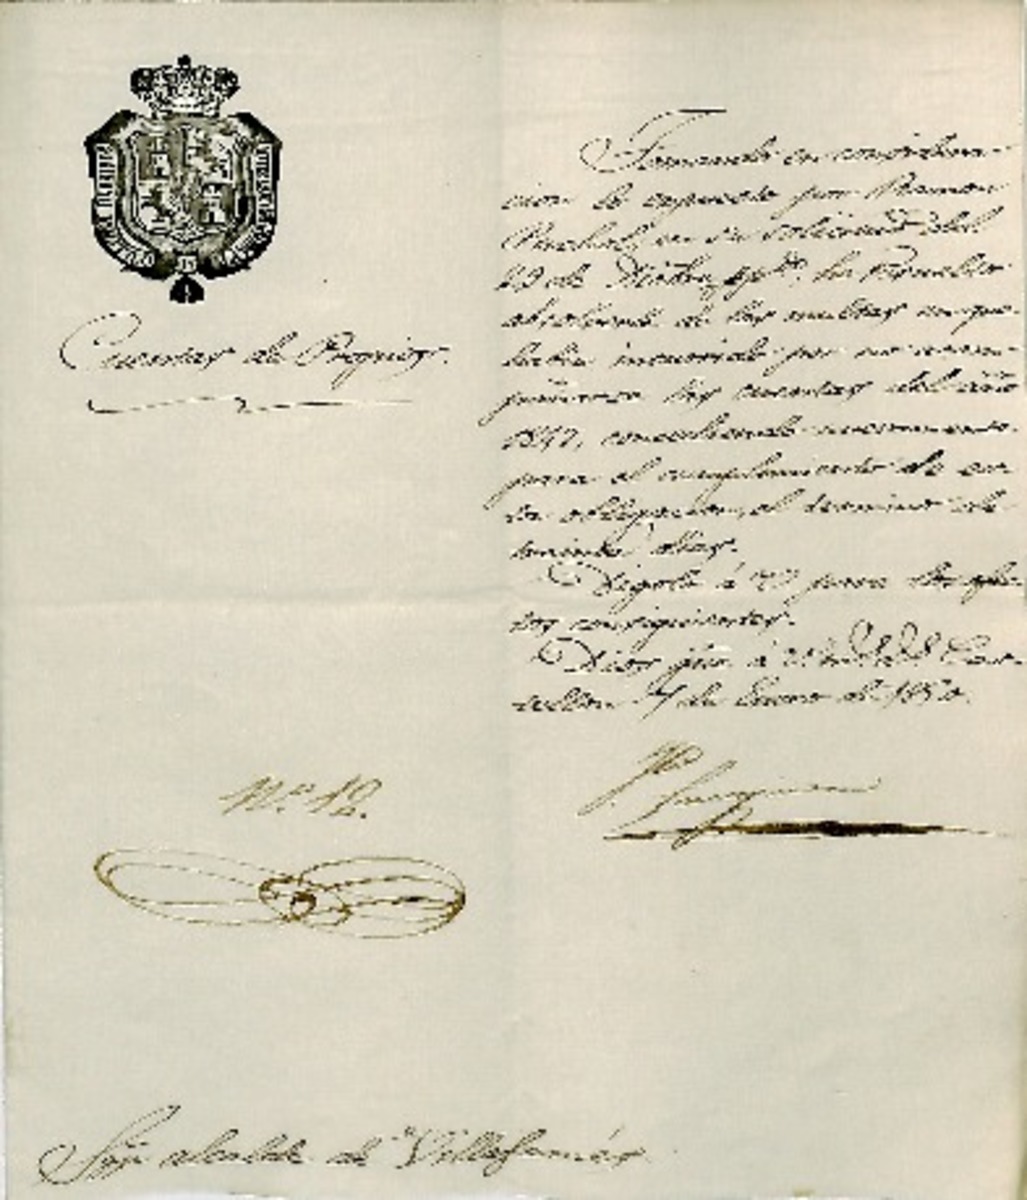 Cuentas de Propios.
Tomando en considera-
cion lo espuesto por Ramon
en su solicitud del
29 de Dicbre he resuelto
absolverle de las multas en que
habia incurrido por no
las cuentas del año
1847, concediendole nuevamente
para el cumplimiento de es-
ta obligacion, el termino de
treinta dias.
Digolo á V. para los efec-
tos consiguientes.
Dios gue. á V. m.s a.s Cas-
tellon 7 de Enero de 1850.
N.º 12.
Sor alcalde de Villafamés